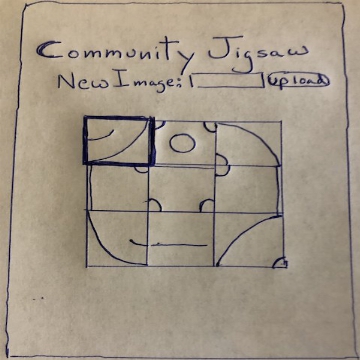 Community Jigsaw
New Image: upload